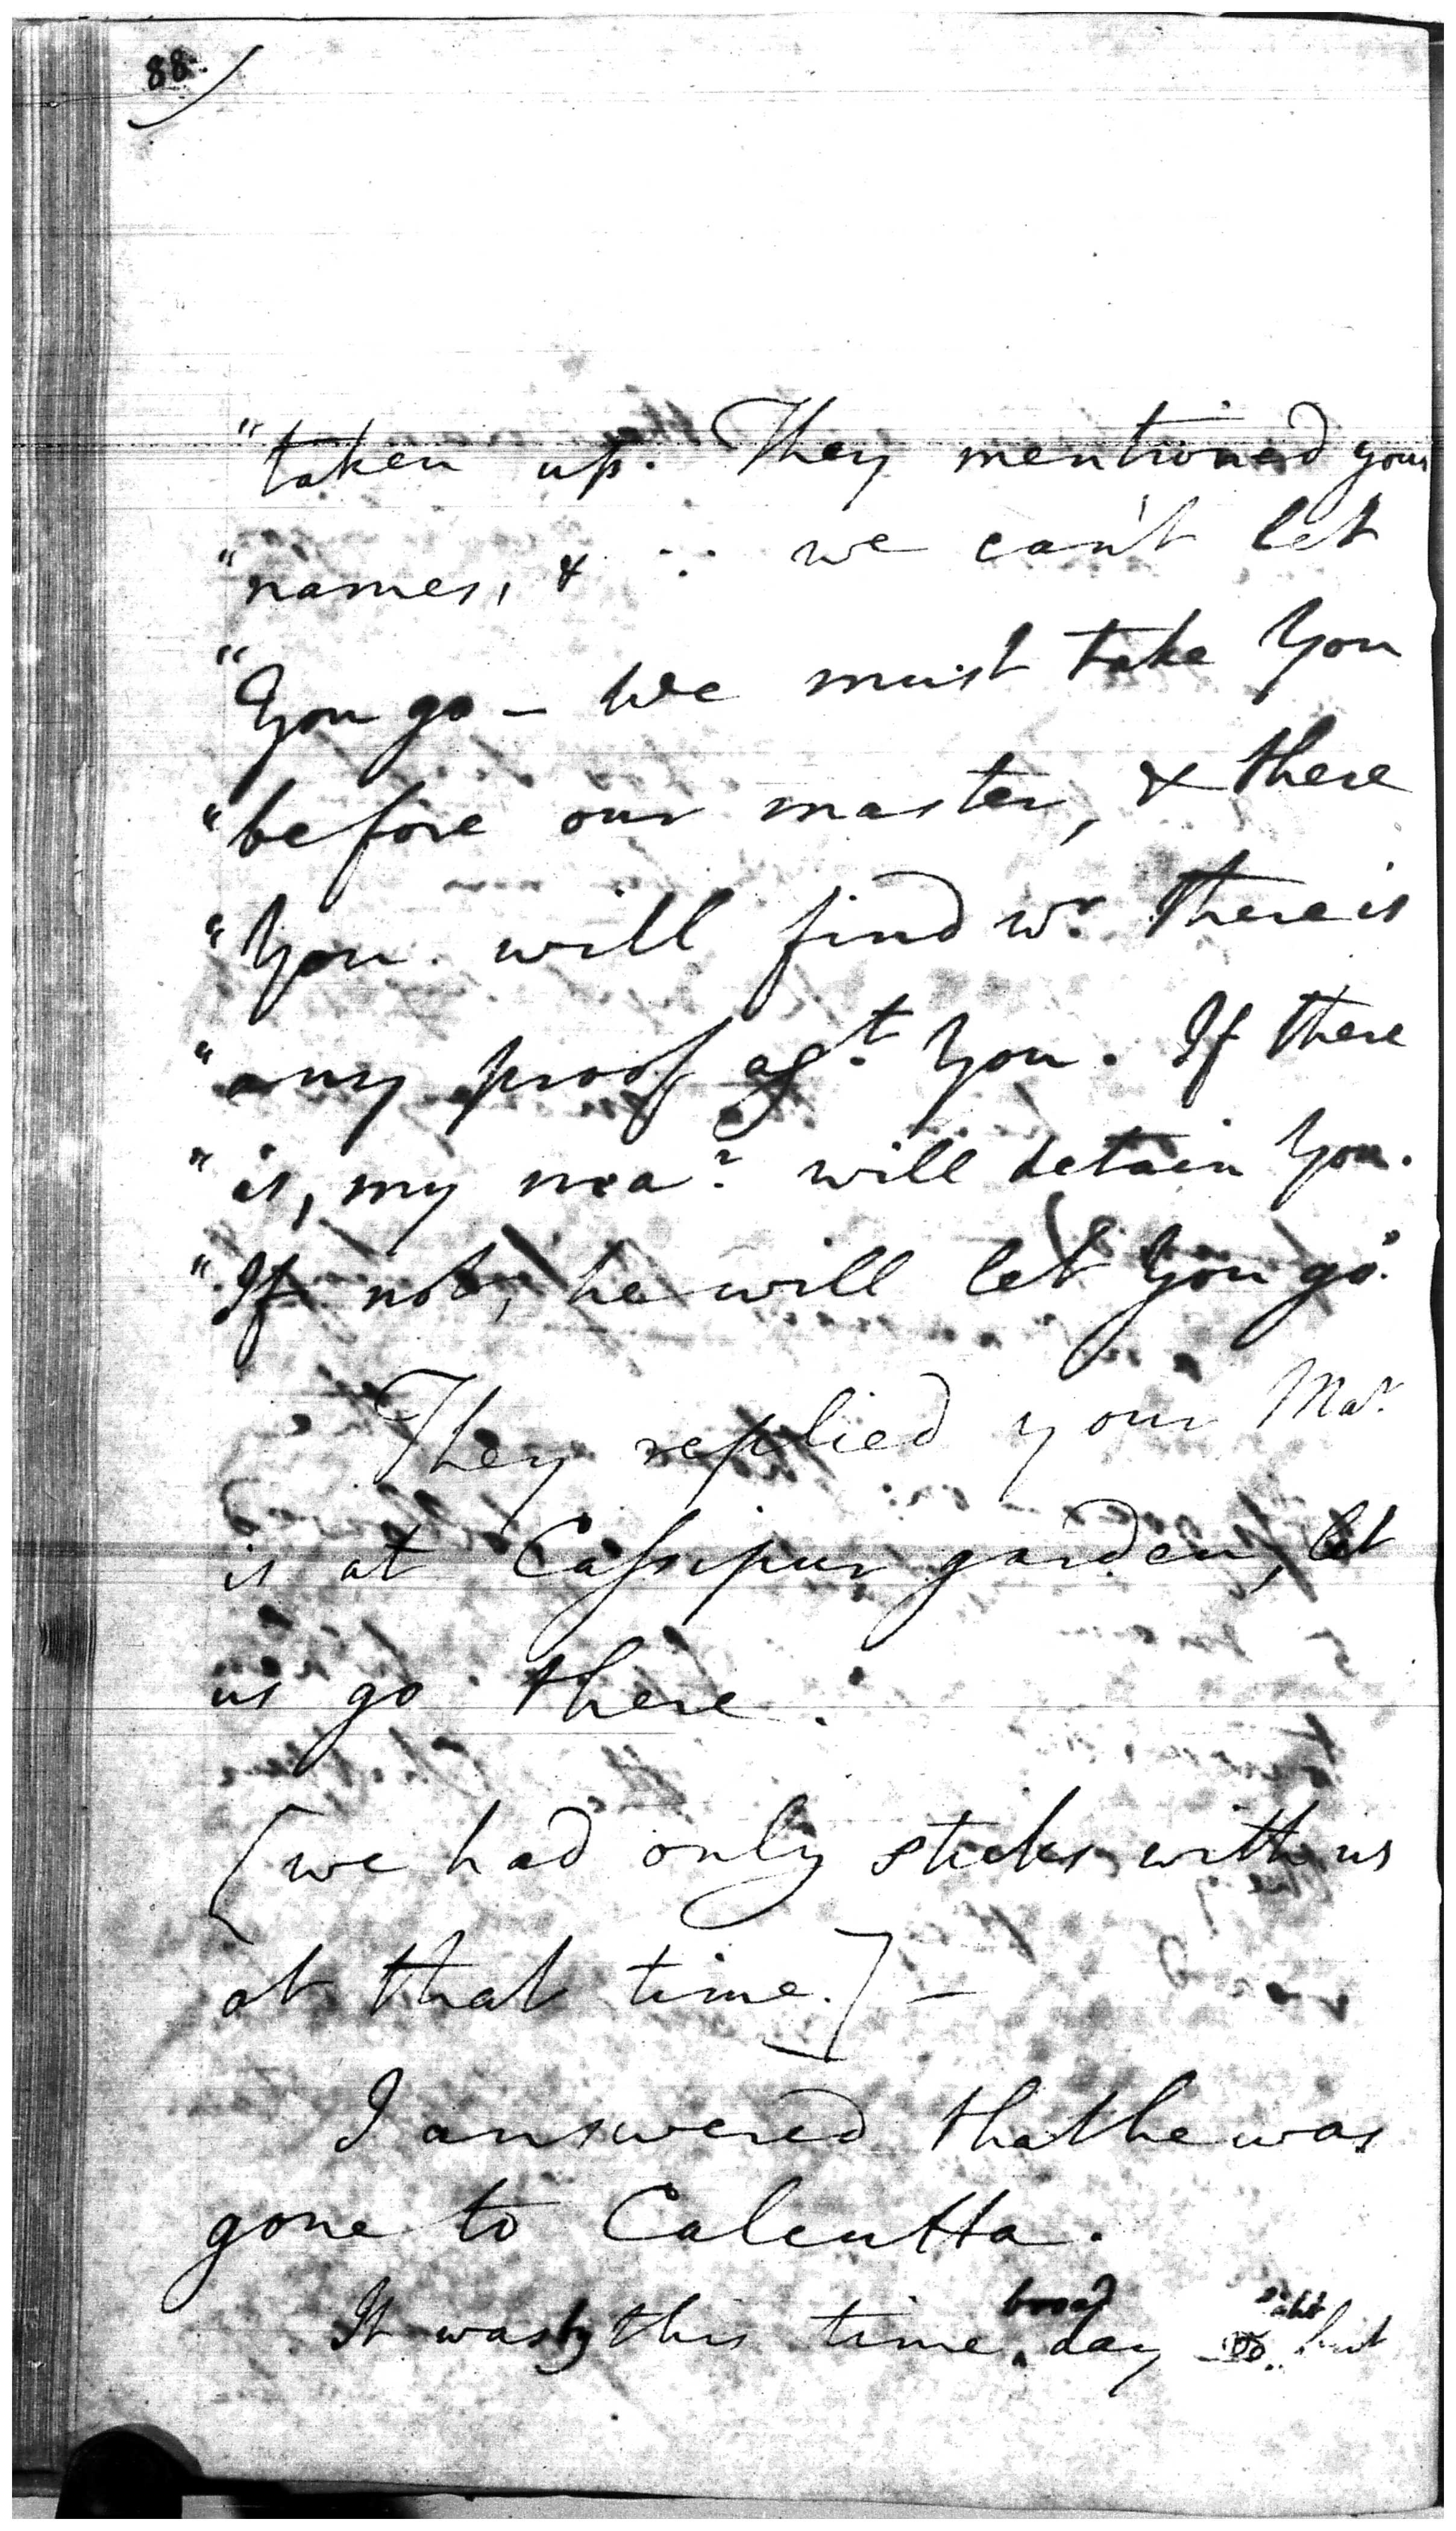 88.
"taken up. They mentioned your
"names, & ∴ we can't let
"You go – We must take You
"before our master, & there
"You will find wr. there is
"any proof agt. You. If there
"is, my mar. will detain You.
"If not, he will let You go."
They replied your Mar.
is at Cassipur garden, let
us go there.
[we had only sticks with us
at that time.] –
I answered that he was
gone to Calcutta.
broad
It was by this time day but